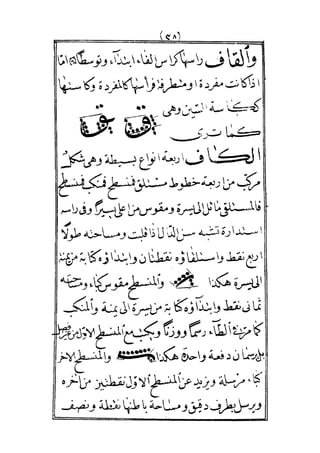 (٢٨)
والقاف راسها كراس الفاء ابتداء وتوسطا واما
اذا كانت مفردة او متطرفة فرأسها كالمفردة وكاستها
كاسة النين وهي
كما ترى ق ق
الكاف اربعة انواع بسيطة وهي شكل
مركب من اربعة خطوط مستلق فمنسطح فمنكب فمنسطح
فالمستلق مائل الى يسرة ومقوس من اعلى يسيرا وفي راسه
استدارة تشبه سن الدال اذا قلبت ومساحته طولا
اربع نقط واستلقاؤه نقطتان وابتداؤه كتابة من يمنة
الى يسرة هكذا والمنسطح مقوس كالباء ومساحته
ثماني نقط وابتداؤه كتابة من يسرة الى يمنة والمنكب
كما مر في الطاء رسما ووزنا ويكتب مع المنسطح الاول من غير فصل
بل يرسمان دفعة واحدة هكذا والمنسطح الاخر
كباء مرسلة ويزيد عن المنسطح الاول نقطتين من آخره
ويرسل بطرف دقيق ومساحة باطنها نقطة ونصف